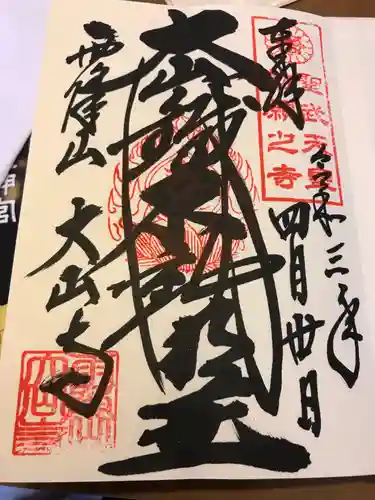 奉拝
聖武天皇
勅願之寺
令和三年
四月丗日
大山鉄不動明王
雨降山
大山寺
神宮